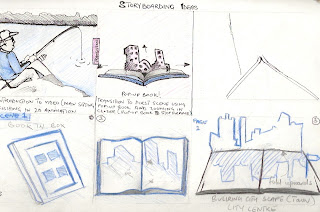 STORYBOARDING IDEAS
POP-UP BOOK!
INTRODUCTION TO VIDEO (MAN SITTING
FISHING IN 2D ANIMATION
SCENE 1
TRANSITION TO FIRST SCENE USING
POP-UP BOOK AND ZOOMING IN
CLOSER (POP-UP BOOK
BOOK IN BOX
2
Fold upwards
BUILDING CITY SCAPE (TOWN)
CITY CENTRE